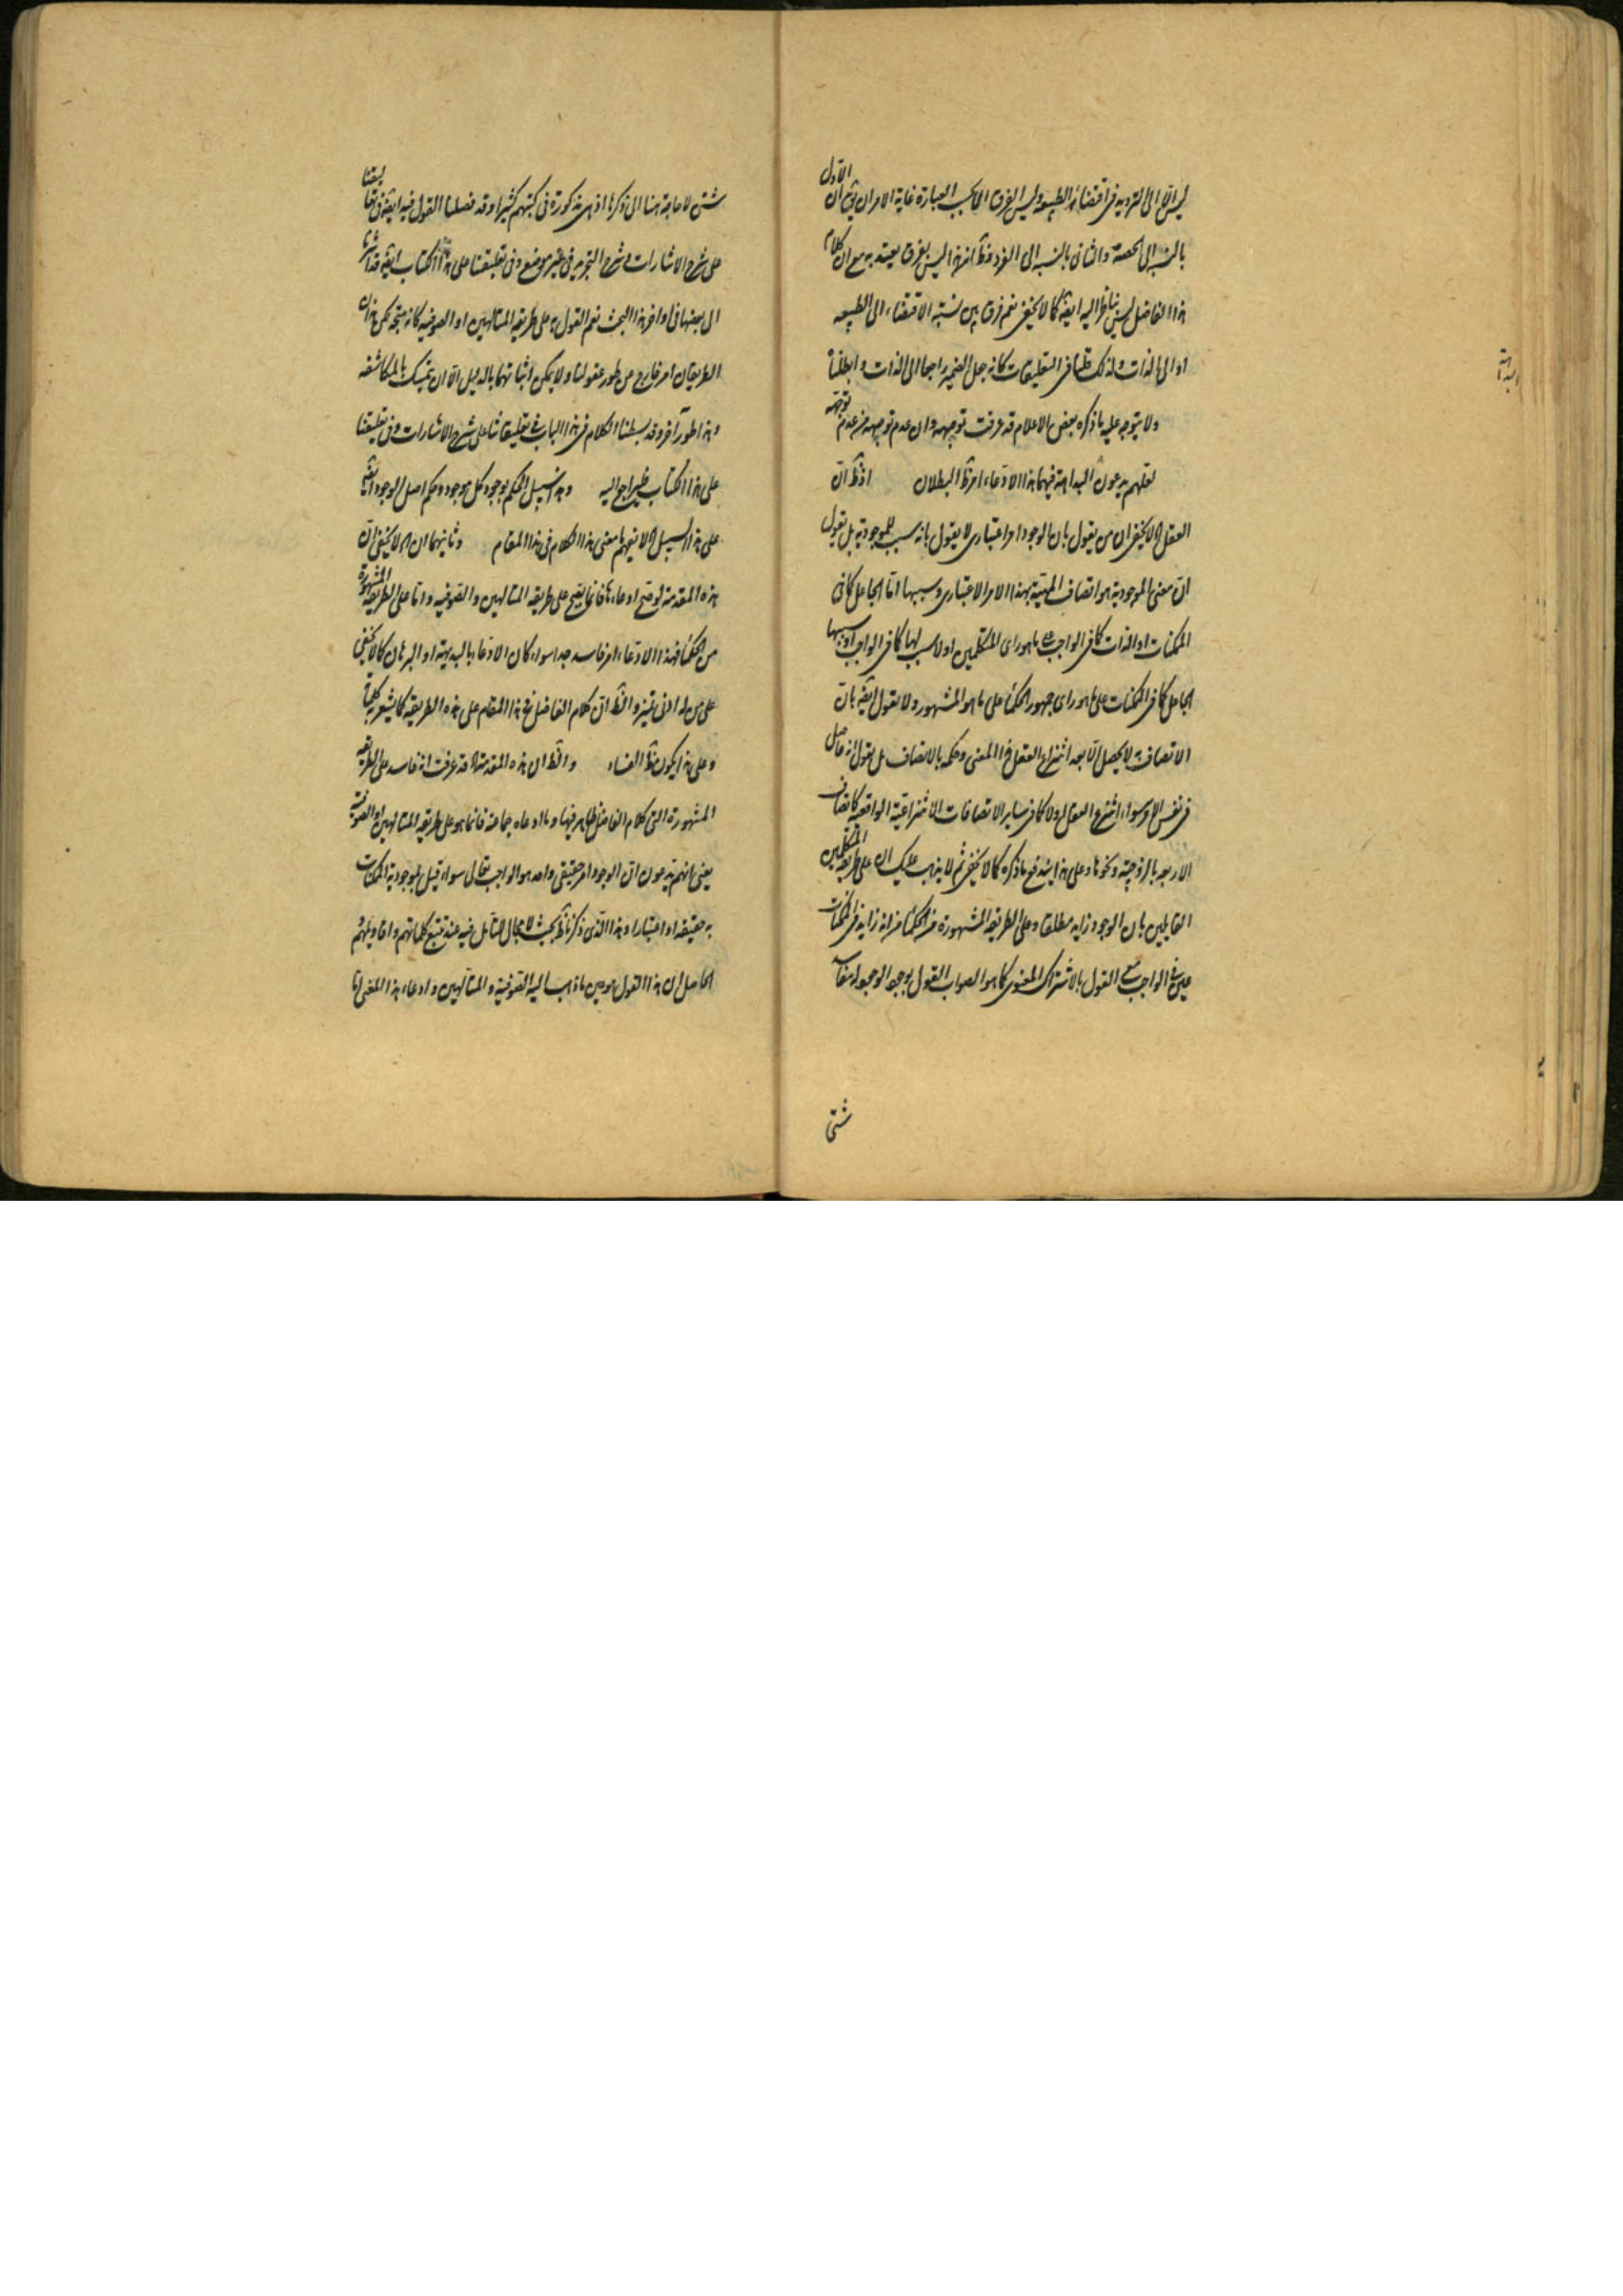 ليس الا الى الترديد فى اقتضائه الطبيعة وليس الفرق الا بحسب العبارة غاية الامر ان يق ان الاول
بالنسبة الى الحصة والثانى بالنسبة الى الفرد فظ ان هذا ليس بفرق يعتد به مع ان كلام
هذا الفاضل ليس بناظر اليه ايض كما لا يخفى نعم فرق بين نسبة الاقتضاء الى الطبيعه
او الى الذات ولذلك فى التعليقات كانه جعل الضمير راجعا الى الذات و
ولا يتوجه عليه ما ذكره بعض الاعلام قد عرفت توجيهه وان عدم توجيهه من عدم توجهه
لعلهم يدعون البداهة فيها هذا الادعاء امر ظ البطلان اذ ظ ان
العقل الا لا يخفى ان من يقول بان الوجود امر اعتبارى لا يقول بانه سبب للموجودية بل يقول
ان معنى الموجودية هو اتصاف المهية بهذا الامر الاعتبارى وسببها اما الجاعل كما فى
الممكنات او الذات كما فى الواجب على ما هو راى المتكلمين او لا سبب لها كما فى الواجب او سببها
الجاعل كما فى الممكنات على ما هو راى جمهور الحكماء على ما هو المشهور ولا يقول ايض بان
الاتصاف لا يحصل الا بعد انتزاع العقل هذا المعنى وحكمه بالاتصاف بل يقول انه حاصل
فى نفس الامر سواء انتزع العقل او لا كما فى ساير الاتصافات الانتزاعية الواقعية كاتصاف
الاربعه بالزوجية ونحوها وعلى هذا اندفع ما ذكره كما لا يخفى ثم لا يذهب عليك ان على طريقة المتكلمين
القايلين بان الوجود زايد مطلقا وعلى الطريقة المشهورة من الحكماء من انه زايد فى الممكنات
عين فى الواجب مع القول بالاشتراك المعنوى كما هو الصواب القول بوجود الوجود
شتى
شتى لا حاجة هنا الى ذكرها اذ هى مذكورة فى كتبهم كثيرا وقد فصلنا القول فيه ايض فى تعليقاتنا
على شرح الاشارات وشرح التجريد فى غير موضع وفى تعليقنا على هذا الكتاب ايض قد اشرنا
الى بعضها فى اواخر هذا البحث نعم القول به على طريقة المتالهين او الصوفيه كانه متجه لكن هذان
الطريقان امر خارج عن طور عقولنا ولا يمكن اثباتهما بالدليل الا ان يتمسك بالمكاشفه
وهذا طور آخر وقد بسطنا الكلام فى هذا الباب فى تعليقاتنا على شرح الاشارات وفى تعليقنا
على هذا الكتاب فليراجع اليه وهذا سبيل الحكم بوجود كل موجود وحكم اصل الوجود ايض
على هذا السبيل الا لا نفهم ما معنى هذا الكلام فى هذا المقام وثانيهما ان الا لا يخفى ان
هذه المقدمة لو صح ادعاءها فانما يصح على طريقه المتالهين والصوفيه واما على الطريقة المشهورة
من الحكماء فهذا الادعاء امر فاسد جدا سواء كان الادعاء بالبديهة او البرهان كما لا يخفى
على من له ادنى تميز والظ ان كلام الفاضل فى هذا المقام على هذه الطريقه كما يشعر به كلماته
وعلى هذا يكون ظ الفساد والظ ان هذه المقدمة الا قد عرفت انه فاسد على الطريقه
المشهورة التى كلام الفاضل ظاهر فيها وما ادعاه جماعة فانما هو على طريقه المتالهين او الصوفية
يعنى انهم يدعون ان الوجود امر حقيقى واحد هو الواجب تعالى سواء قيل بموجودية الممكنات
به حقيقه او اعتبارا وهذا الذى ذكرنا ظ بحيث لا مجال للتامل فيه عند تتبع كلماتهم واقاويلهم
الحاصل ان هذا القول هو عين ما ذهب اليه الصوفية والمتالهين وادعاء هذا المعنى اما